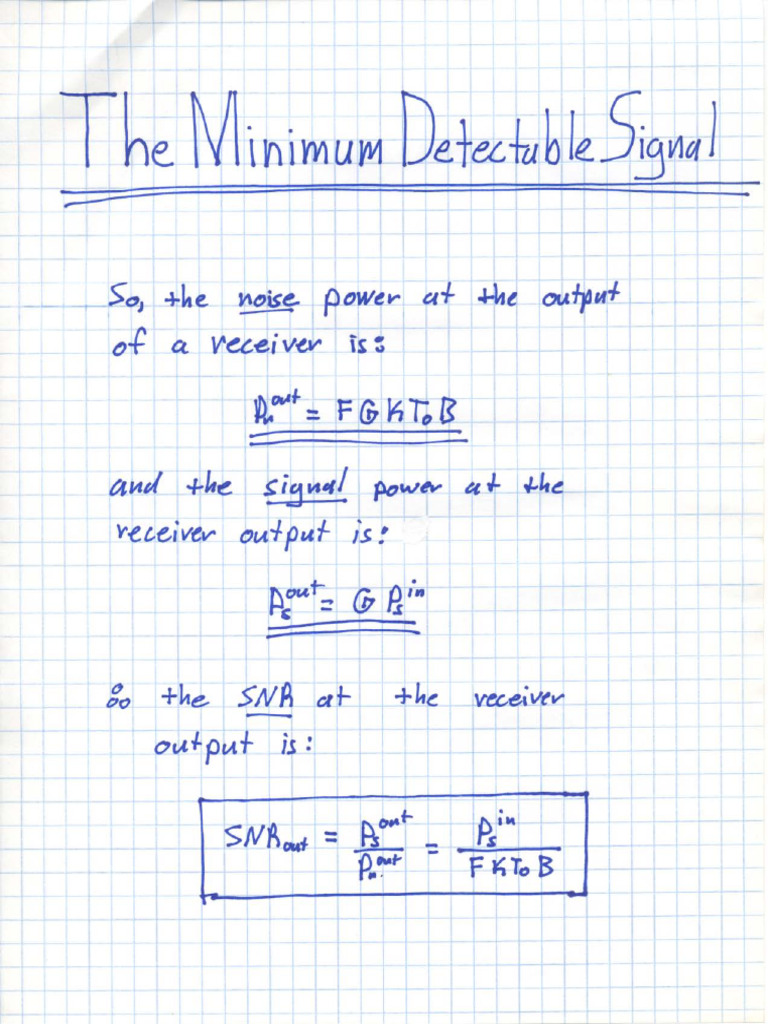 The Minimum Detectable Signal
So, the noise power at the output
of a receiver is:
Pₙᵒᵘᵗ = F G K T₀ B
and the signal power at the
receiver output is:
Pₛᵒᵘᵗ = G Pₛⁱⁿ
∴ the SNR at the receiver
output is:
SNR_out = Pₛᵒᵘᵗ / Pₙᵒᵘᵗ = Pₛⁱⁿ / F K T₀ B